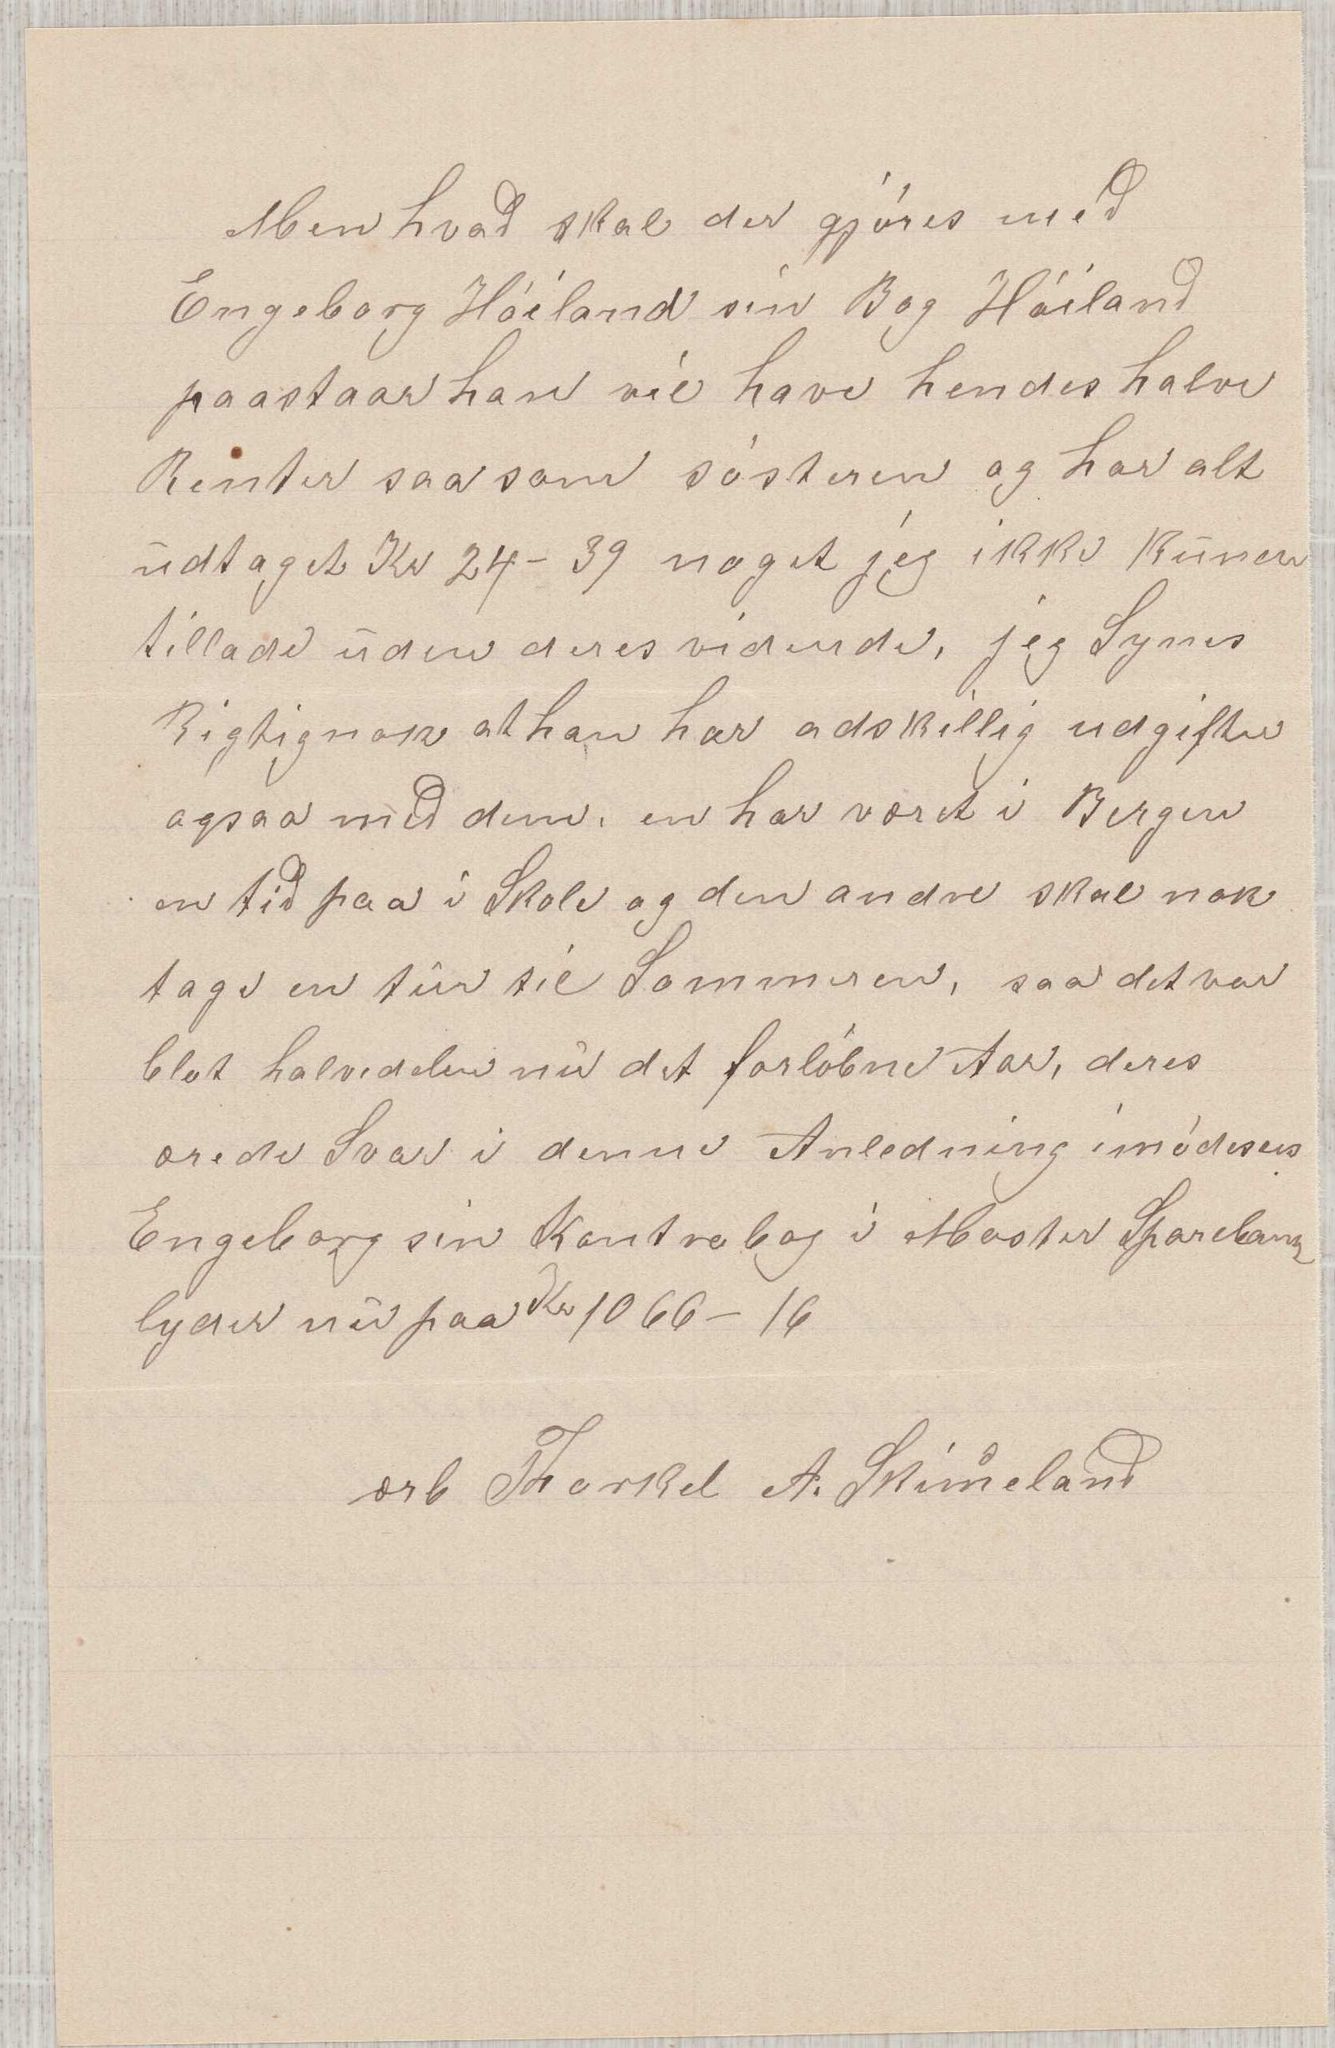 Men hvad skal der gjöres med
Engeborg Höiland sin Bog Höiland
paastaar han vil have hendes halve
Renter saa som sösteren og har alt
udtaget Kr 24 - 39 noget jeg ikke kunew
tillade uden deres vidende, jeg Synes
Rigtignok at han har adskillig udgifter
ogsaa med dem, en har været i Bergen
en tid paa i Skole og den andre skal nok
tage en tur til Sommeren, saa det var
blot halvedelen nu det forlöbne Aar, deres
ærede Svar i denne Anledning imödesees
Engeborg sin Kontrabog i Moster Sparebank
lyder nu paa Kr 1066 - 16
ærb Thorkel A. Skimeland